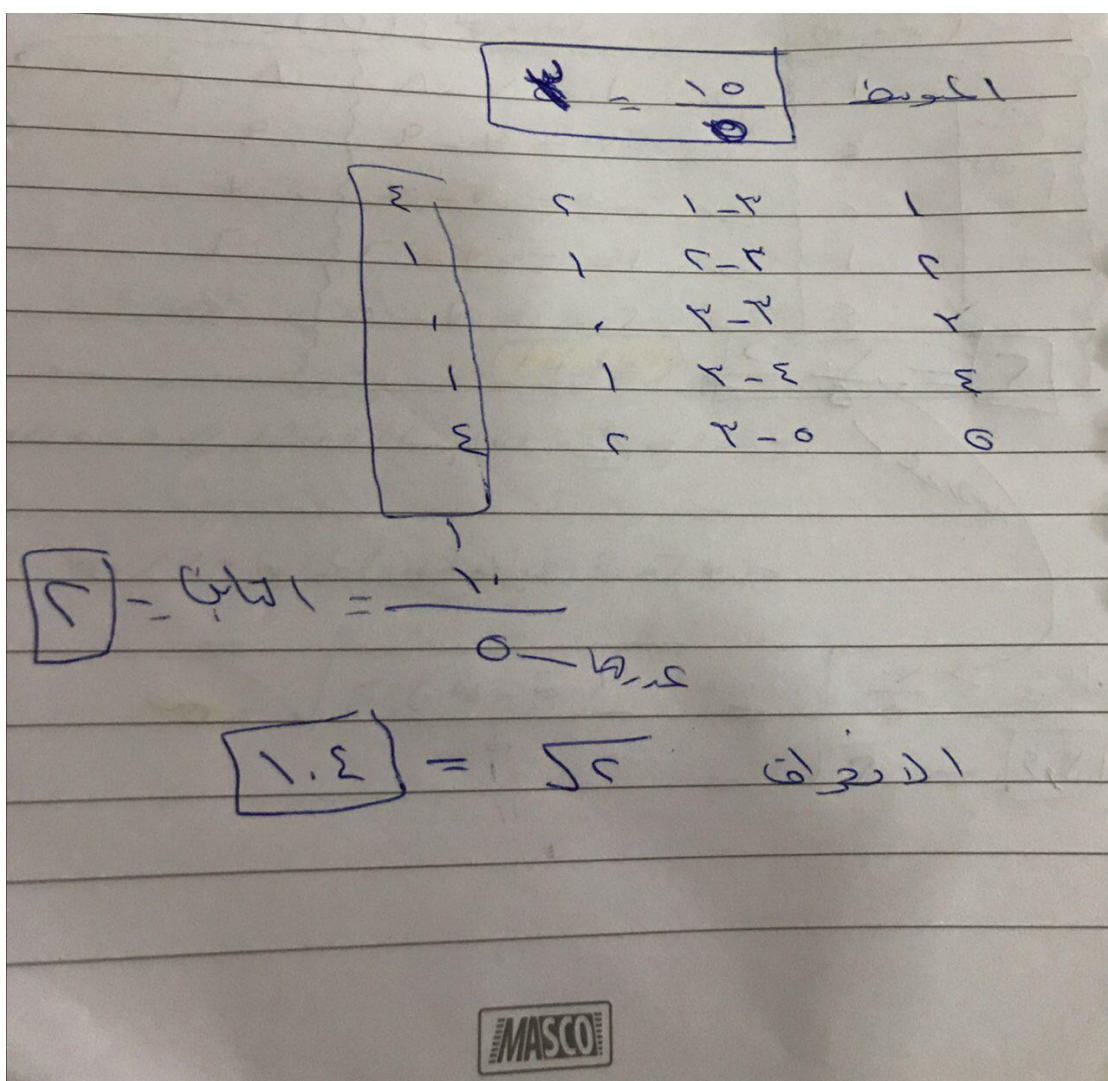 المتوسط ١٥/٥ = ٣
١ ٣-١ ٢ ٤
٢ ٣-٢ ١ ١
٣ ٣-٣ ٠ ٠
٤ ٤-٣ ١ ١
٥ ٥-٣ ٢ ٤
١٠/٥ = التباين = ٢
عددها
الانحراف √٢ = ١.٤
MASCO